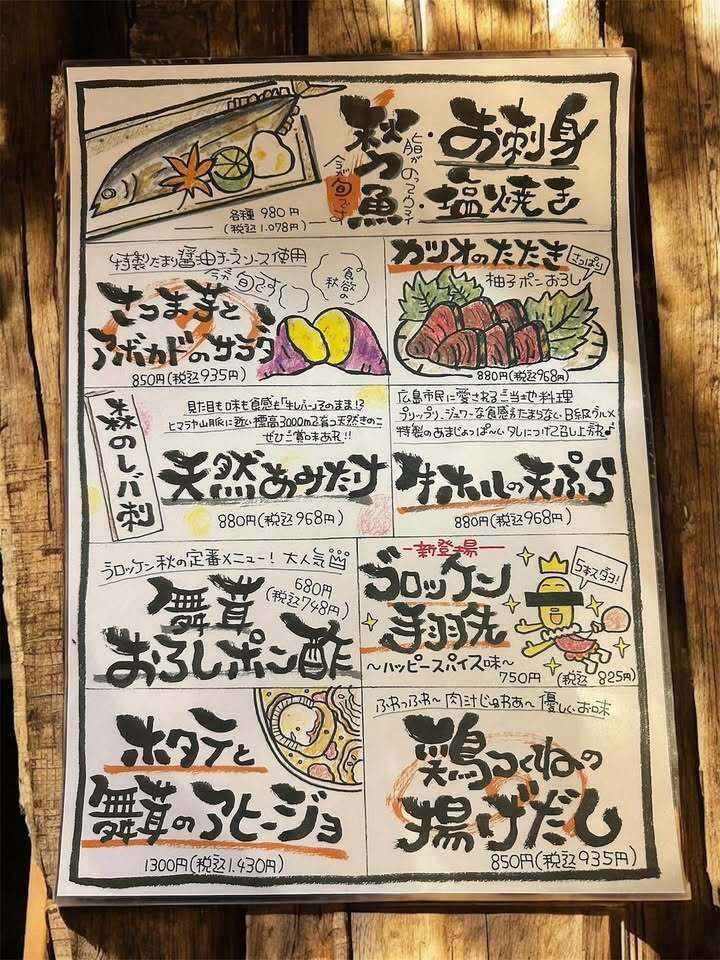 秋刀魚
・お刺身
・塩焼き
脂がのってウマイ
今が旬です
各種 980円
(税込1.078円)
特製たまり醤油チーズソース使用
今が旬です
食欲の秋
さつま芋と
アボカドのサラダ
850円(税込935円)
カツオのたたき
さっぱり
柚子ポンおろし
880円(税込968円)
森のレバ刺
見た目も味も食感も「牛レバー」そのまま!?
ヒマラヤ山脈に近い標高3000mで育つ天然きのこ
ぜひご賞味あれ!!
天然あみたけ
880円(税込968円)
広島市民に愛されるご当地料理
プリップリ、ジュワーな食感がたまらないB級グルメ
特製のあまじょっぱ〜いタレにつけて召し上がれ♪
牛ホルの天ぷら
880円(税込968円)
ラロッケン秋の定番メニュー!大人気
舞茸
おろしポン酢
680円
(税込748円)
新登場
ゴロッケン
手羽先
〜ハッピースパイス味〜
750円(税込825円)
ホタテと
舞茸のアヒージョ
1300円(税込1.430円)
ふわっふわ〜肉汁じゅわあ〜優しいお味
鶏つくねの
揚げだし
850円(税込935円)